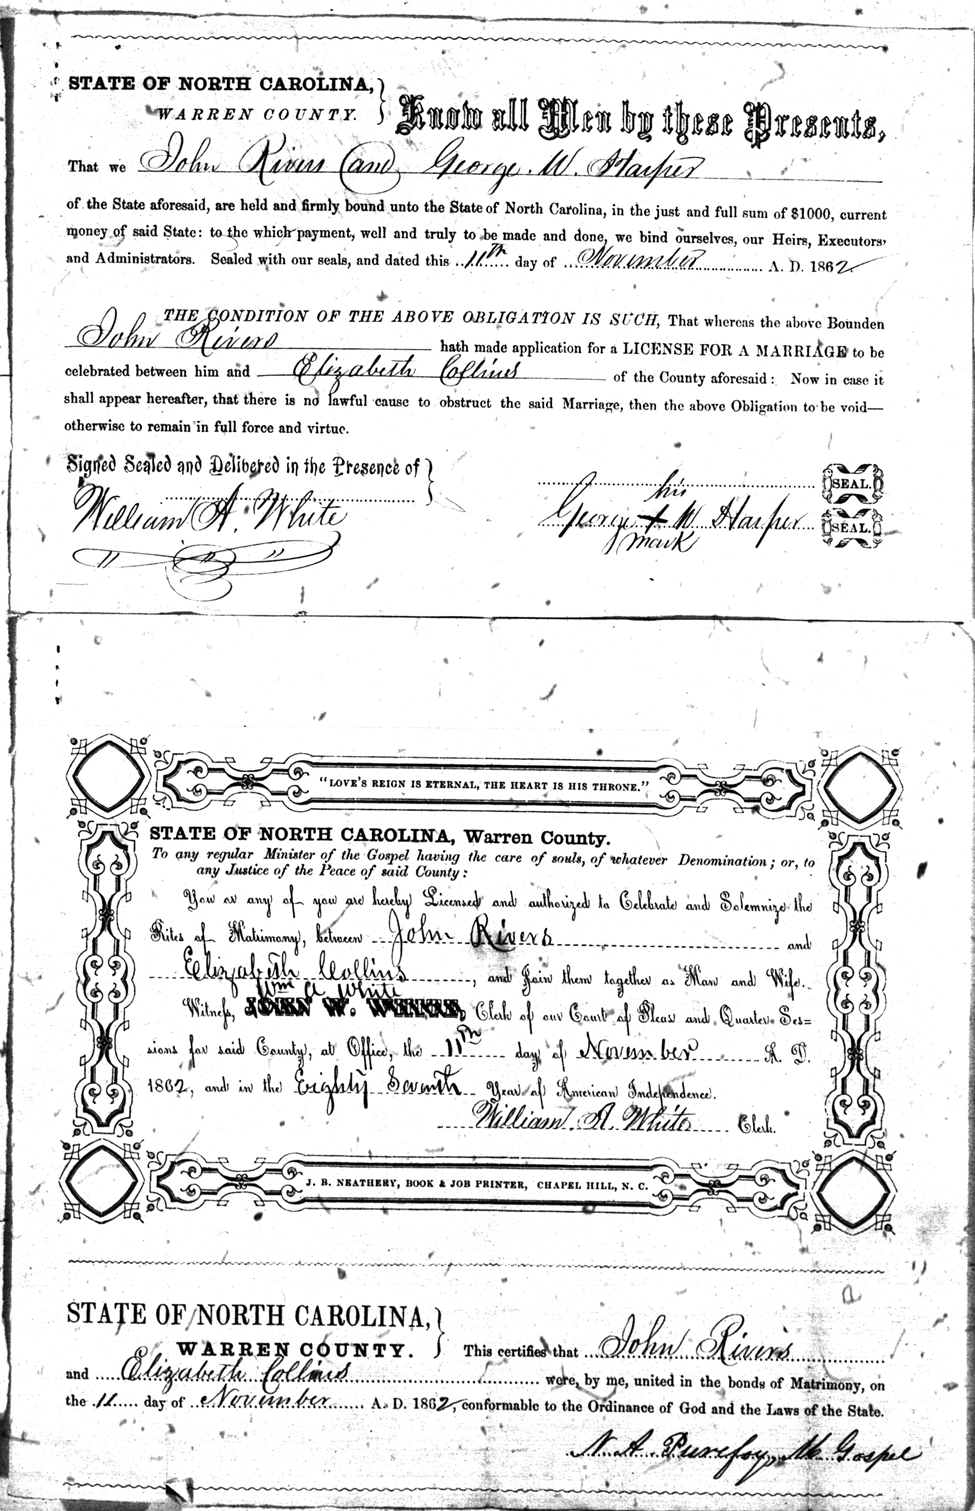 STATE OF NORTH CAROLINA,
WARREN COUNTY.
Know all Men by these Presents,
That we John Rivers and George. W. Harper
of the State aforesaid, are held and firmly bound unto the State of North Carolina, in the just and full sum of $1000, current
money of said State: to the which payment, well and truly to be made and done, we bind ourselves, our Heirs, Executors,
and Administrators. Sealed with our seals, and dated this 11th day of November A. D. 1862.
THE CONDITION OF THE ABOVE OBLIGATION IS SUCH, That whereas the above Bounden
John Rivers hath made application for a LICENSE FOR A MARRIAGE to be
celebrated between him and Elizabeth Collines of the County aforesaid: Now in case it
shall appear hereafter, that there is no lawful cause to obstruct the said Marriage, then the above Obligation to be void—
otherwise to remain in full force and virtue.
Signed Sealed and Delivered in the Presence of
SEAL.
William A. White
his
George + W Harper SEAL.
mark
"LOVE'S REIGN IS ETERNAL, THE HEART IS HIS THRONE."
STATE OF NORTH CAROLINA, Warren County.
To any regular Minister of the Gospel having the care of souls, of whatever Denomination; or, to
any Justice of the Peace of said County:
You or any of you are hereby Licensed and authorized to Celebrate and Solemnize the
Rites of Matrimony, between John Rivers and
Elizabeth Collins, and Join them together as Man and Wife.
Wm A White
Witness, JOHN W. WHITE, Clerk of our Court of Pleas and Quarter Ses=
sions for said County, at Office, the 11th day of November A. D.
1862, and in the Eighty Seventh Year of American Independence.
William. A. White Clerk.
J. B. NEATHERY, BOOK & JOB PRINTER, CHAPEL HILL, N. C.
STATE OF NORTH CAROLINA,
WARREN COUNTY.
This certifies that John Rivers
and Elizabeth Collins were, by me, united in the bonds of Matrimony, on
the 11 day of November A. D. 1862, conformable to the Ordinance of God and the Laws of the State.
N. A. Purefoy, M Gospel